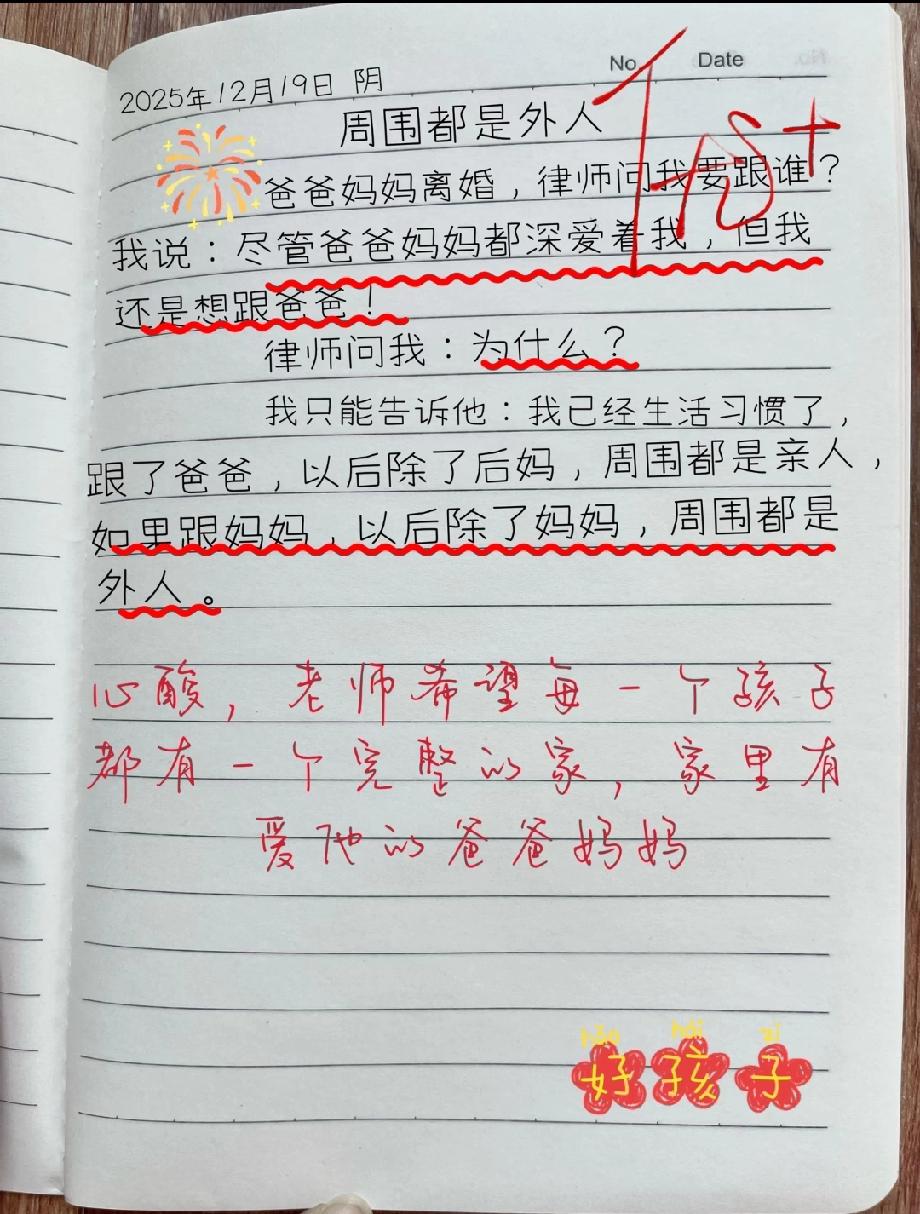 No. Date
2025年12月19日 阴
周围都是外人
爸爸妈妈离婚，律师问我要跟谁？
我说：尽管爸爸妈妈都深爱着我，但我
还是想跟爸爸！
律师问我：为什么？
我只能告诉他：我已经生活习惯了，
跟了爸爸，以后除了后妈，周围都是亲人，
如果跟妈妈，以后除了妈妈，周围都是
外人。
心酸，老师希望每一个孩子
都有一个完整的家，家里有
爱他的爸爸妈妈
hǎo hái zi
好孩子